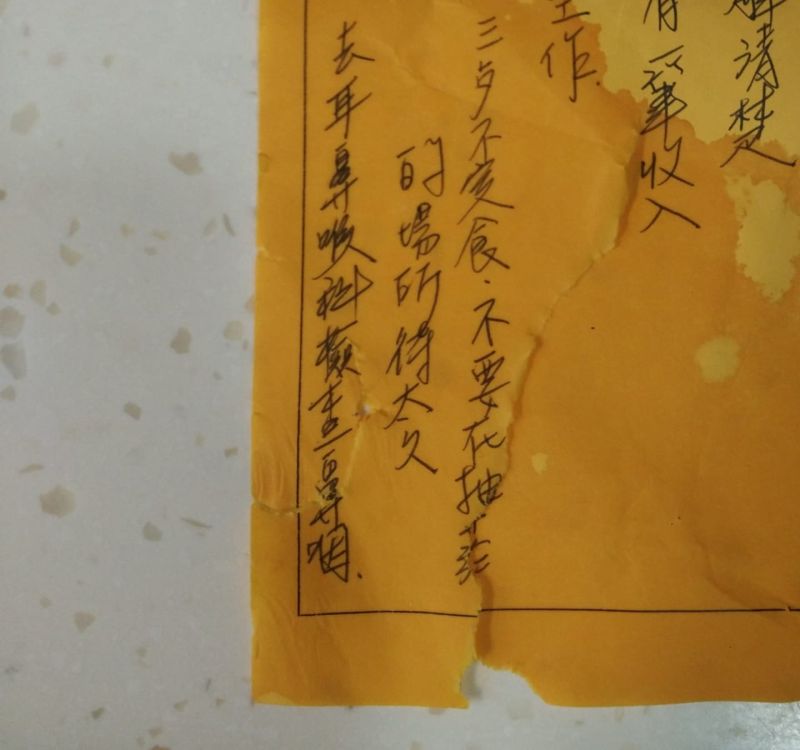 解請楚
有一筆收入
工作.
三歺不定食.不要在抽菸
的場所待太久
去耳鼻喉科檢查鼻咽.